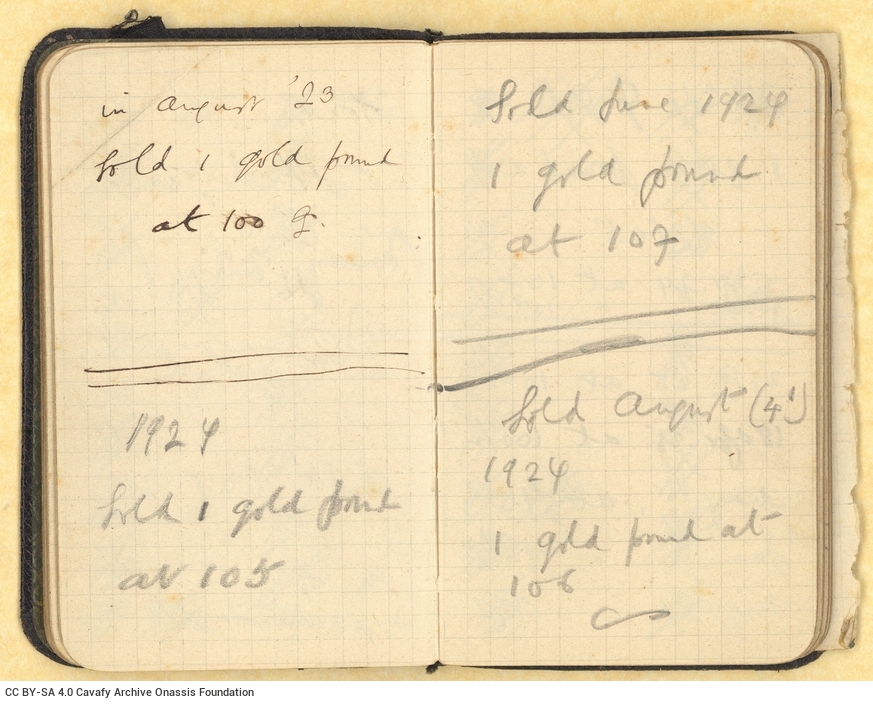 in august '23
Sold 1 gold pound
at 100
1924
Sold 1 gold pound
at 105
Sold June 1924
1 gold pound
at 107
Sold August (4')
1924
1 gold pound at
106
CC BY-SA 4.0 Cavafy Archive Onassis Foundation